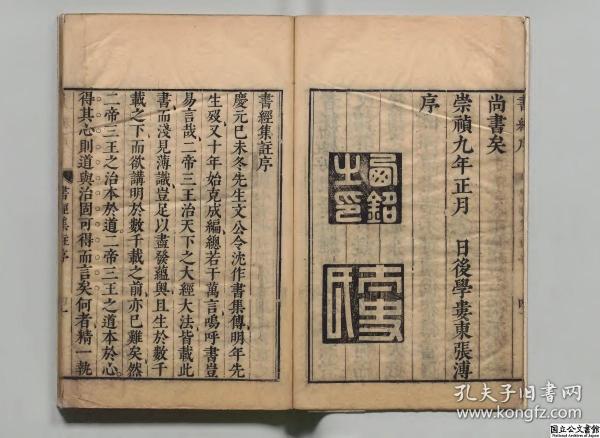 尚書矣
崇禎九年正月　日後學婁東張溥
序
書經集註序
慶元己未冬先生文公令沈作書集傳明年先
生歿又十年始克成編總若干萬言嗚呼書豈
易言哉二帝三王治天下之大經大法皆載此
書而淺見薄識豈足以盡發蘊奧且生於數千
載之下而欲講明於數千載之前亦已難矣然
二帝三王之治本於道二帝三王之道本於心
得其心則道與治固可得而言矣何者精一執
書經集註序
孔夫子旧书网
www.kongfz.com
国立公文書館
National Archives of Japan